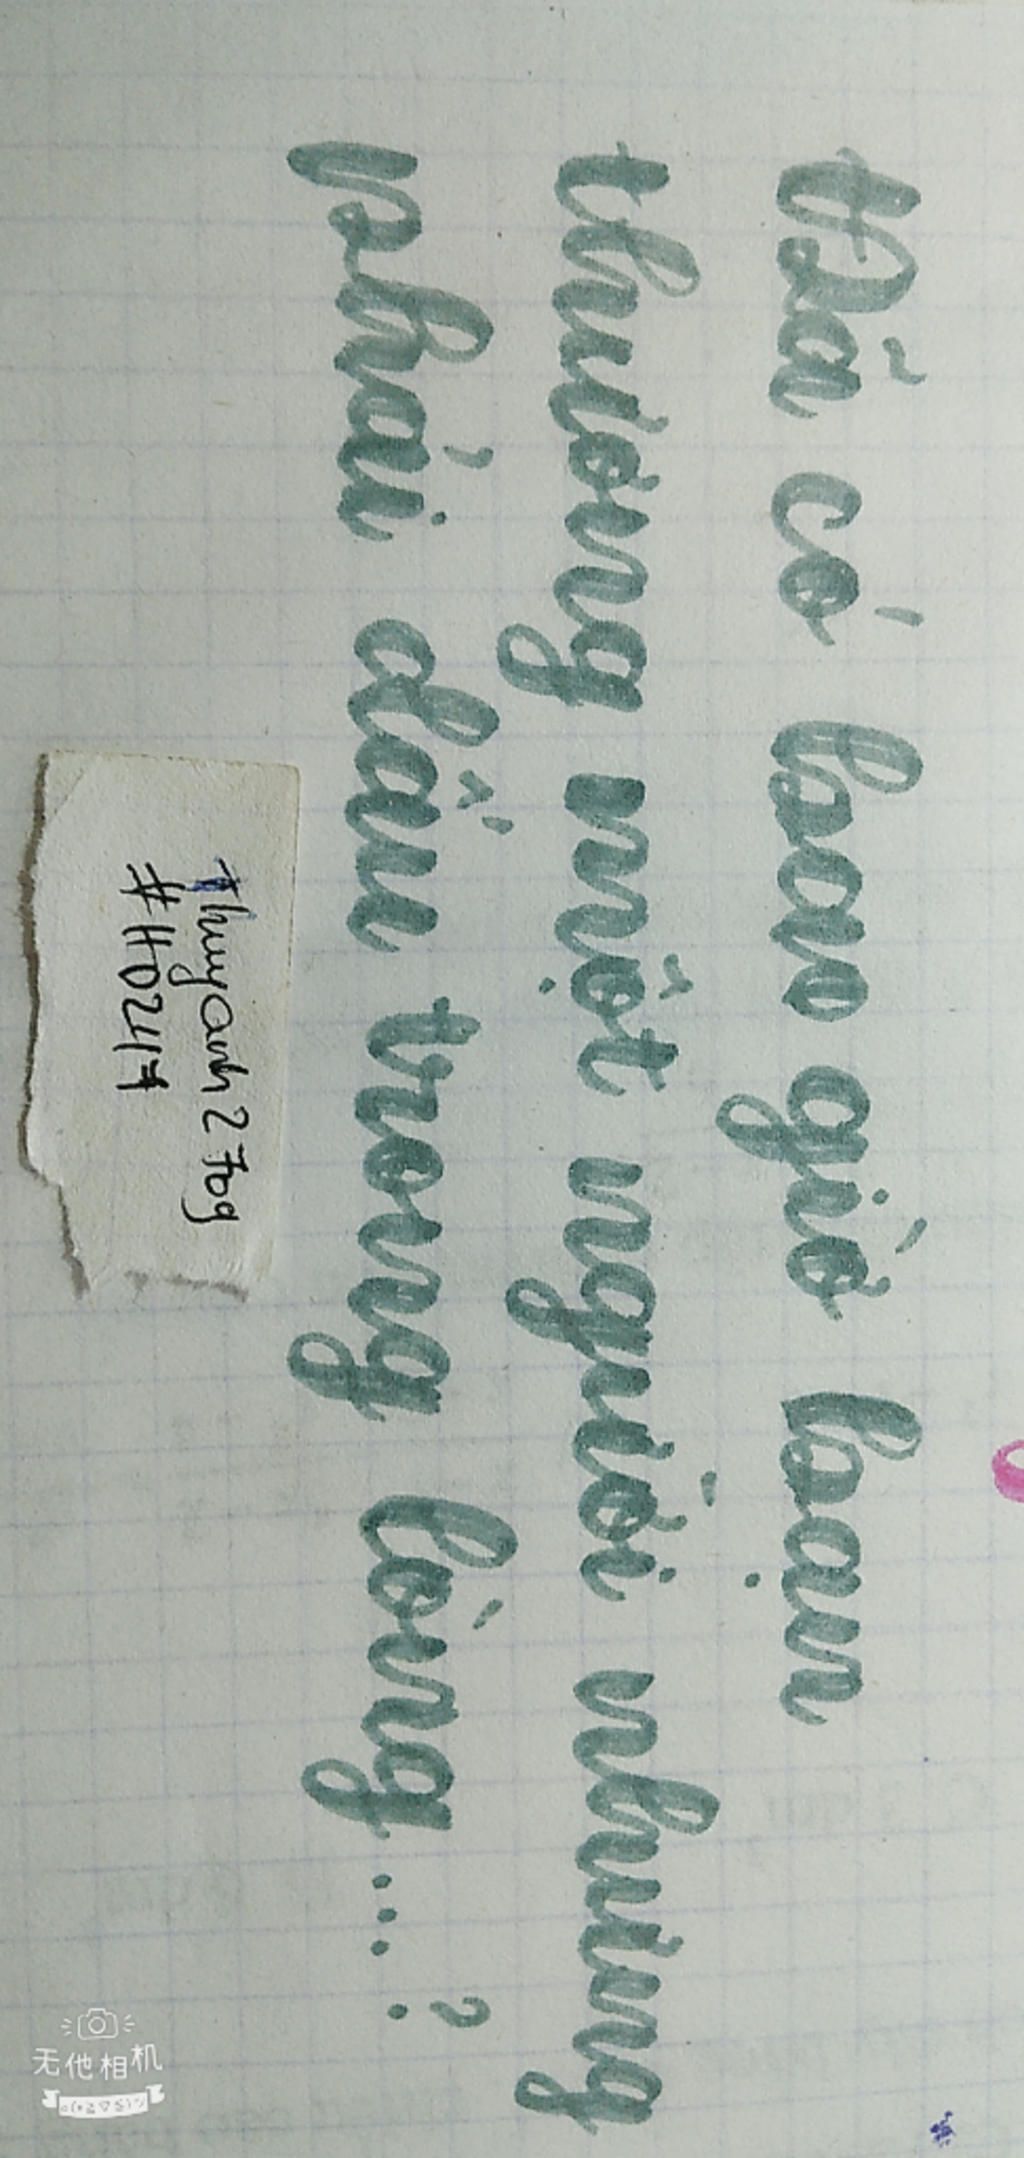 Đã có bao giờ bạn
thương một người nhưng
phải dấu trong lòng...?
thuyanh2709
#HD2417
无他相机